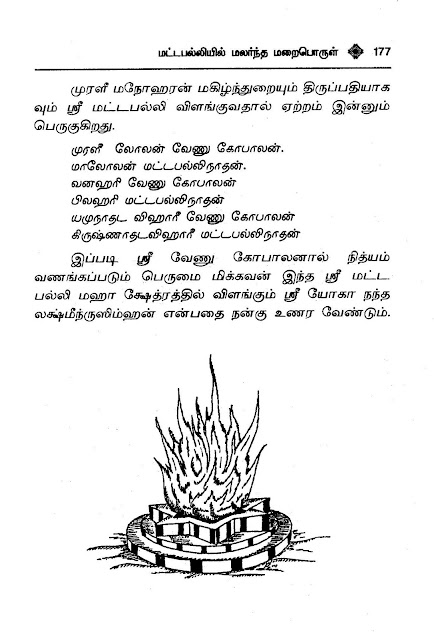 மட்டபல்லியில் மலர்ந்த மறைபொருள் 177
முரளீ மநோஹரன் மகிழ்ந்துறையும் திருப்பதியாக
வும் ஸ்ரீ மட்டபல்லி விளங்குவதால் ஏற்றம் இன்னும்
பெருகுகிறது.
முரளீ லோலன் வேணு கோபாலன்.
மாலோலன் மட்டபல்லிநாதன்.
வனஹரி வேணு கோபாலன்
பிலஹரி மட்டபல்லிநாதன்
யமுநாதட விஹாரீ வேணு கோபாலன்
கிருஷ்ணாதடவிஹாரீ மட்டபல்லிநாதன்
இப்படி ஸ்ரீ வேணு கோபாலனால் நித்யம்
வணங்கப்படும் பெருமை மிக்கவன் இந்த ஸ்ரீ மட்ட
பல்லி மஹா க்ஷேத்ரத்தில் விளங்கும் ஸ்ரீ யோகா நந்த
லக்ஷ்மீந்ருஸிம்ஹன் என்பதை நன்கு உணர வேண்டும்.